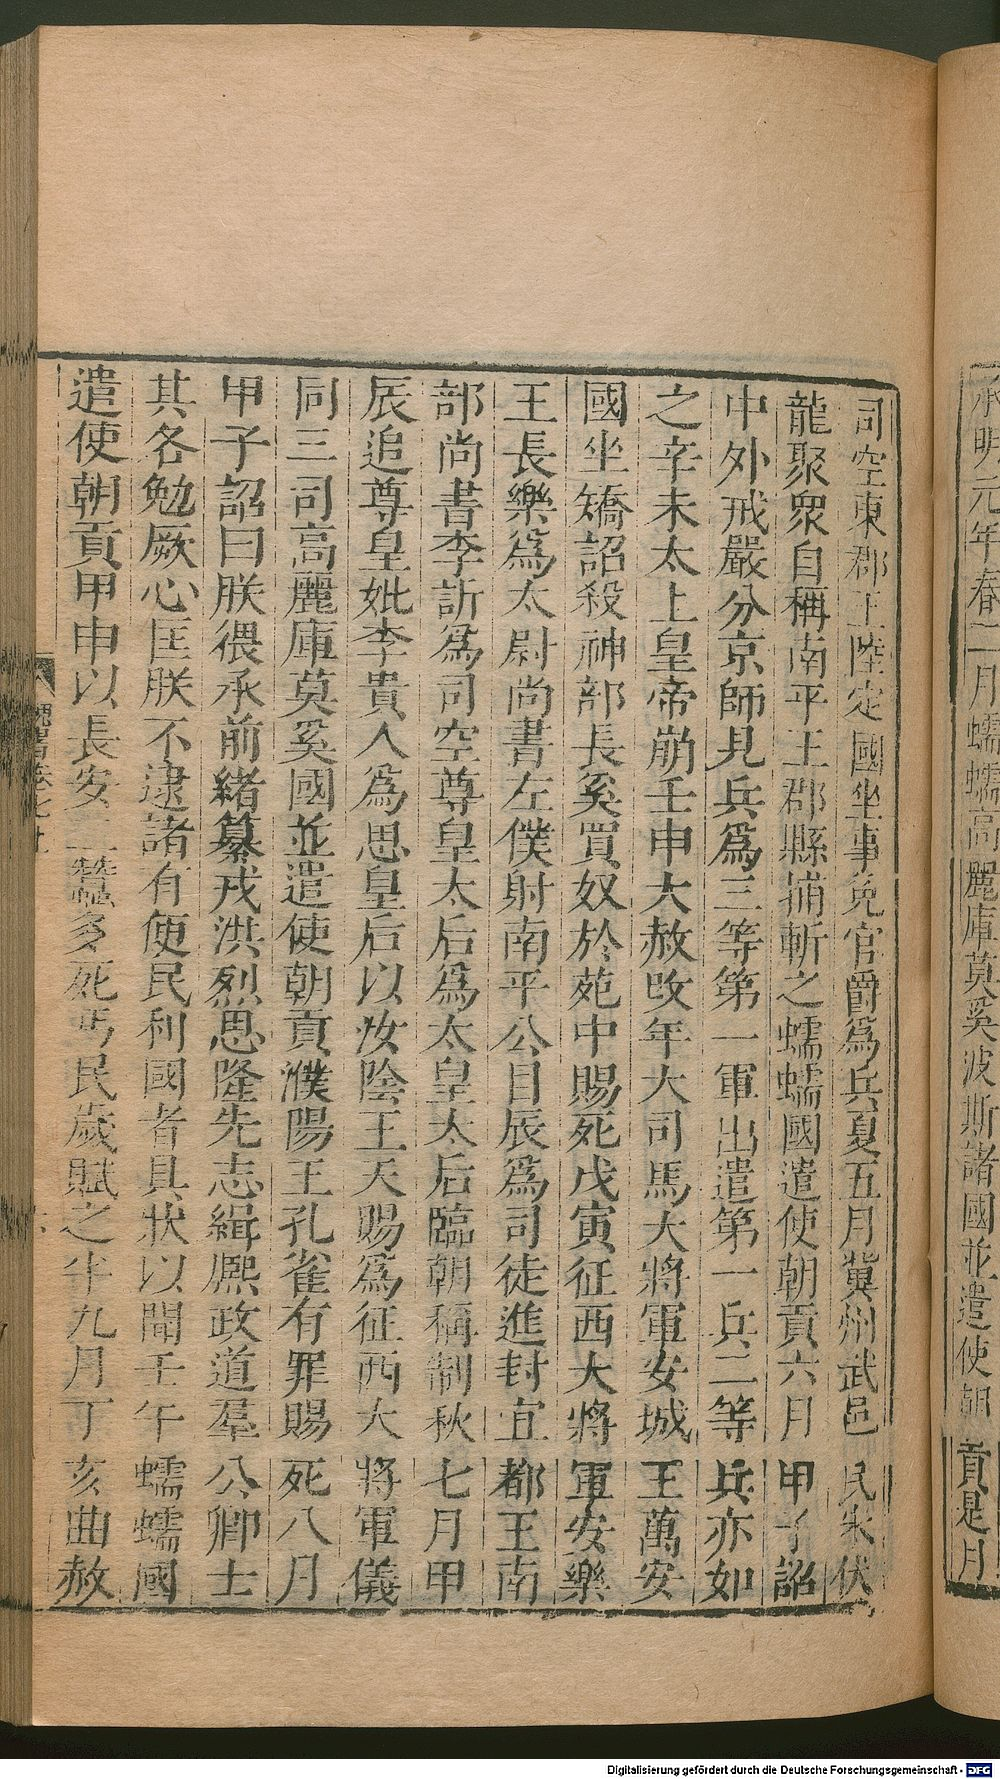 承明元年春二月蠕蠕高麗庫莫奚波斯諸國並遣使朝貢是月
司空東郡王陸定國坐事免官爵爲兵夏五月冀州武邑民宋伏
龍聚衆自稱南平王郡縣捕斬之蠕蠕國遣使朝貢六月甲子詔
中外戒嚴分京師見兵爲三等第一軍出遣第一兵二等兵亦如
之辛未太上皇帝崩壬申大赦改年大司馬大將軍安城王萬安
國坐矯詔殺神部長奚買奴於苑中賜死戊寅征西大將軍安樂
王長樂爲太尉尚書左僕射南平公目辰爲司徒進封宜都王南
部尚書李訢爲司空尊皇太后爲太皇太后臨朝稱制秋七月甲
辰追尊皇妣李貴人爲思皇后以汝陰王天賜爲征西大將軍儀
同三司高麗庫莫奚國並遣使朝貢濮陽王孔雀有罪賜死八月
甲子詔曰朕猥承前緒纂戎洪烈思隆先志緝熈政道羣公卿士
其各勉厥心匡朕不逮諸有便民利國者具狀以聞壬午蠕蠕國
遣使朝貢甲申以長安二蠶多死丐民歲賦之半九月丁亥曲赦
魏書卷七
Digitalisierung gefördert durch die Deutsche Forschungsgemeinschaft - DFG